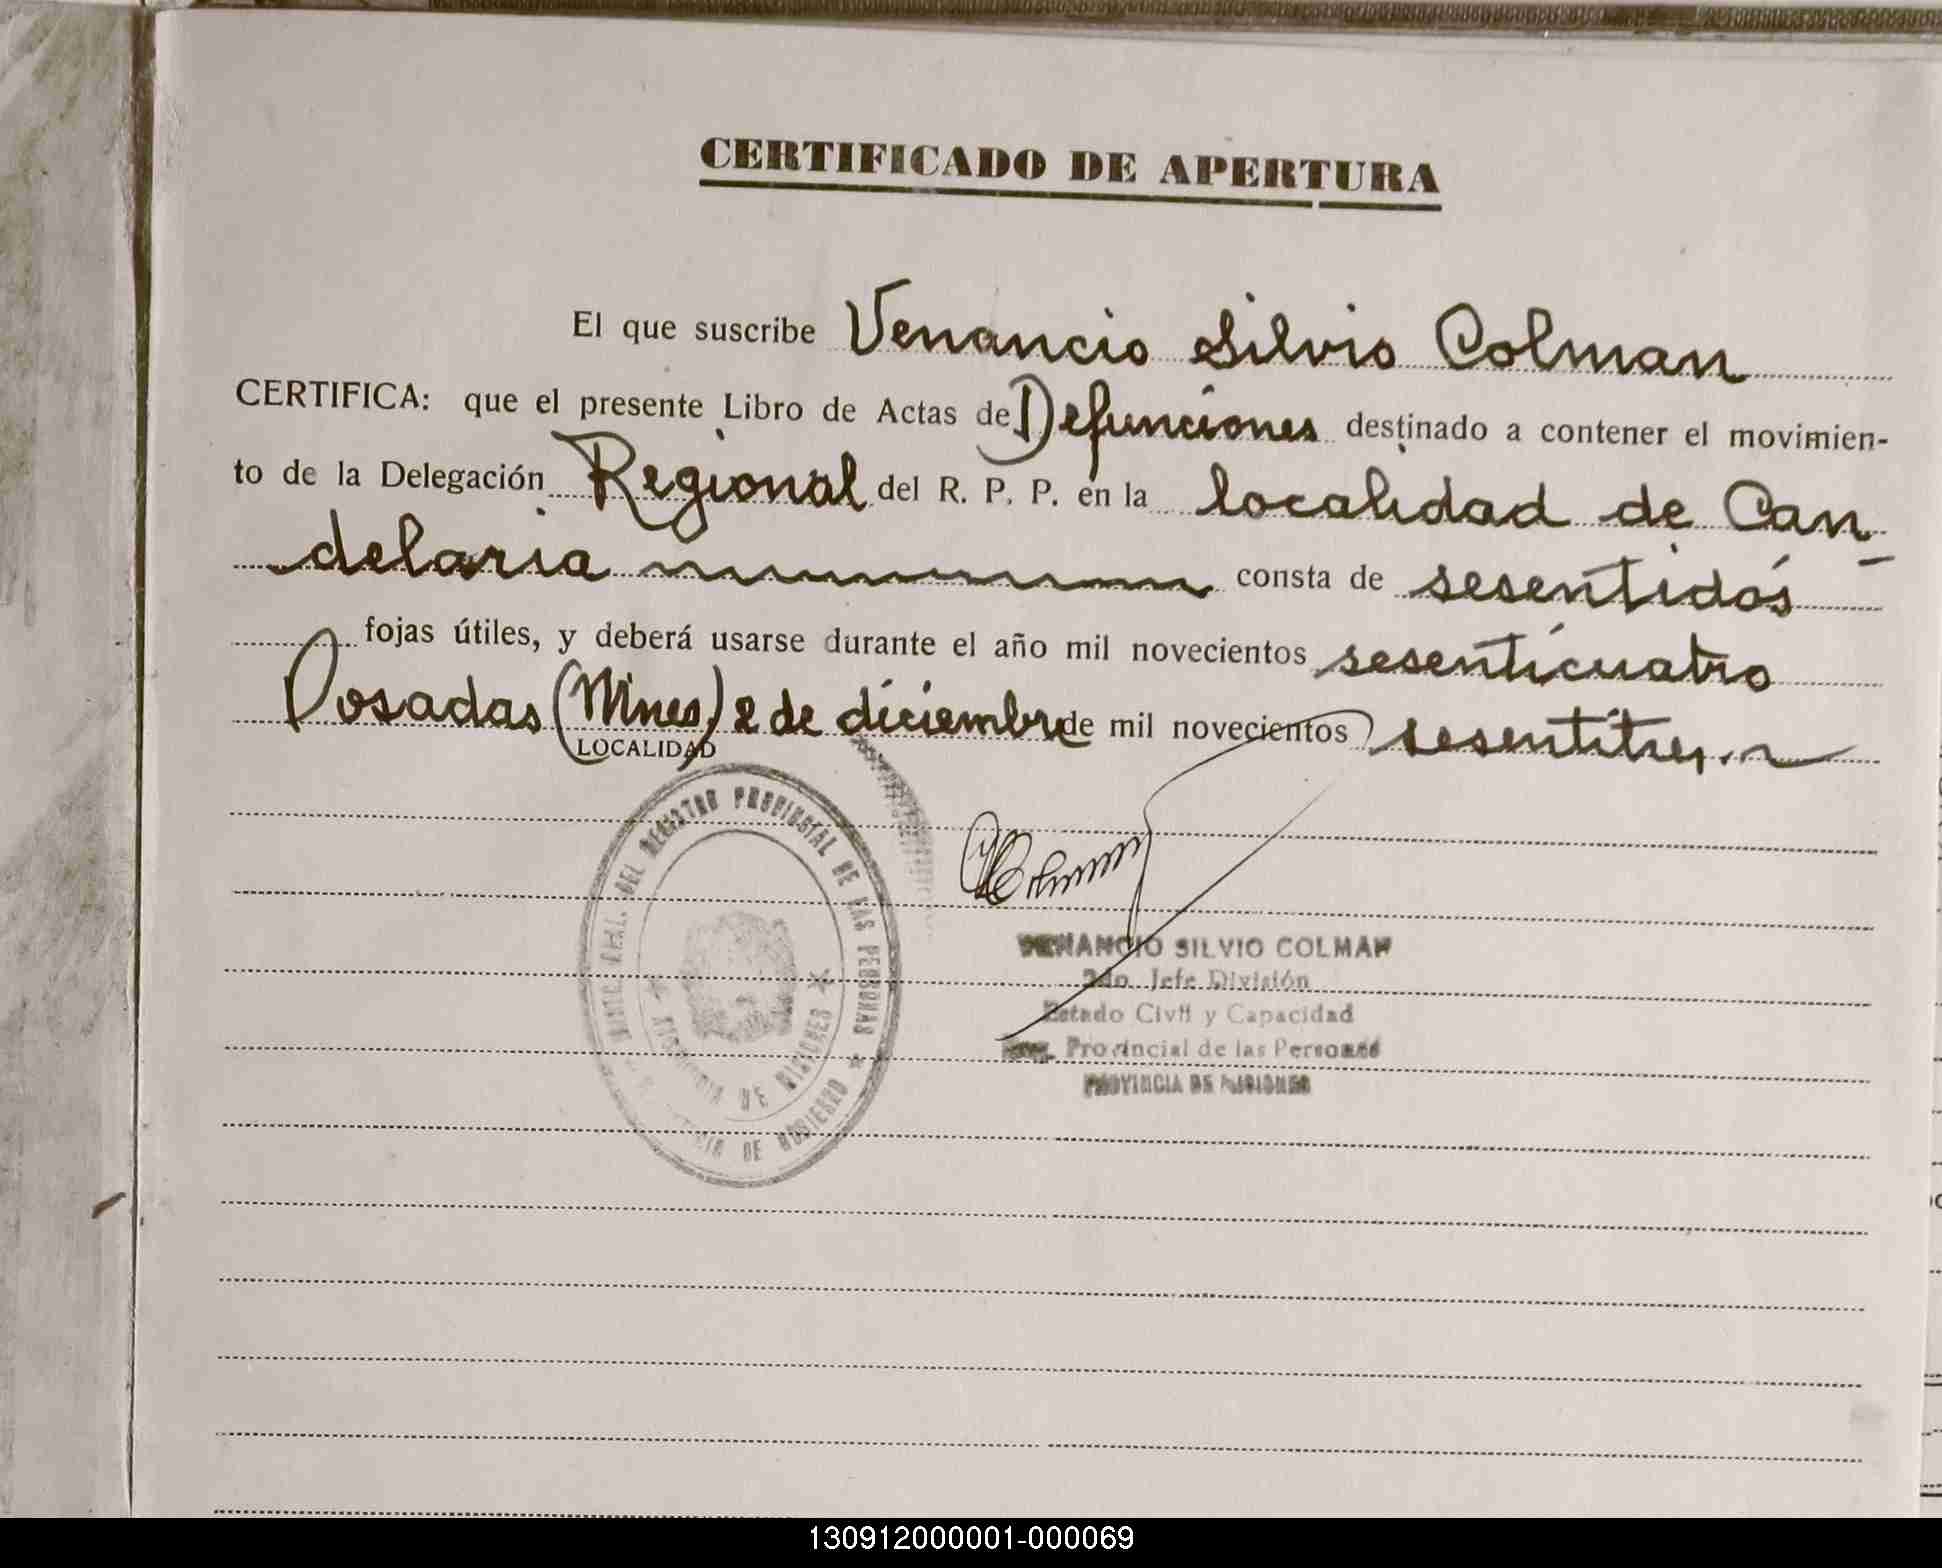 CERTIFICADO DE APERTURA
El que suscribe Venancio Silvio Colman
CERTIFICA: que el presente Libro de Actas de Defunciones destinado a contener el movimien-
to de la Delegación Regional del R. P. P. en la localidad de Can
delaria consta de sesentidós
fojas útiles, y deberá usarse durante el año mil novecientos sesenticuatro
Posadas (Mnes) 2 de diciembre de mil novecientos sesentitres
LOCALIDAD
DEL REGISTRO PROVINCIAL DE LAS PERSONAS
PROVINCIA DE MISIONES
DE GOBIERNO
Colman
VENANCIO SILVIO COLMAN
2do. Jefe División
Estado Civil y Capacidad
Provincial de las Personas
PROVINCIA DE MISIONES
130912000001-000069